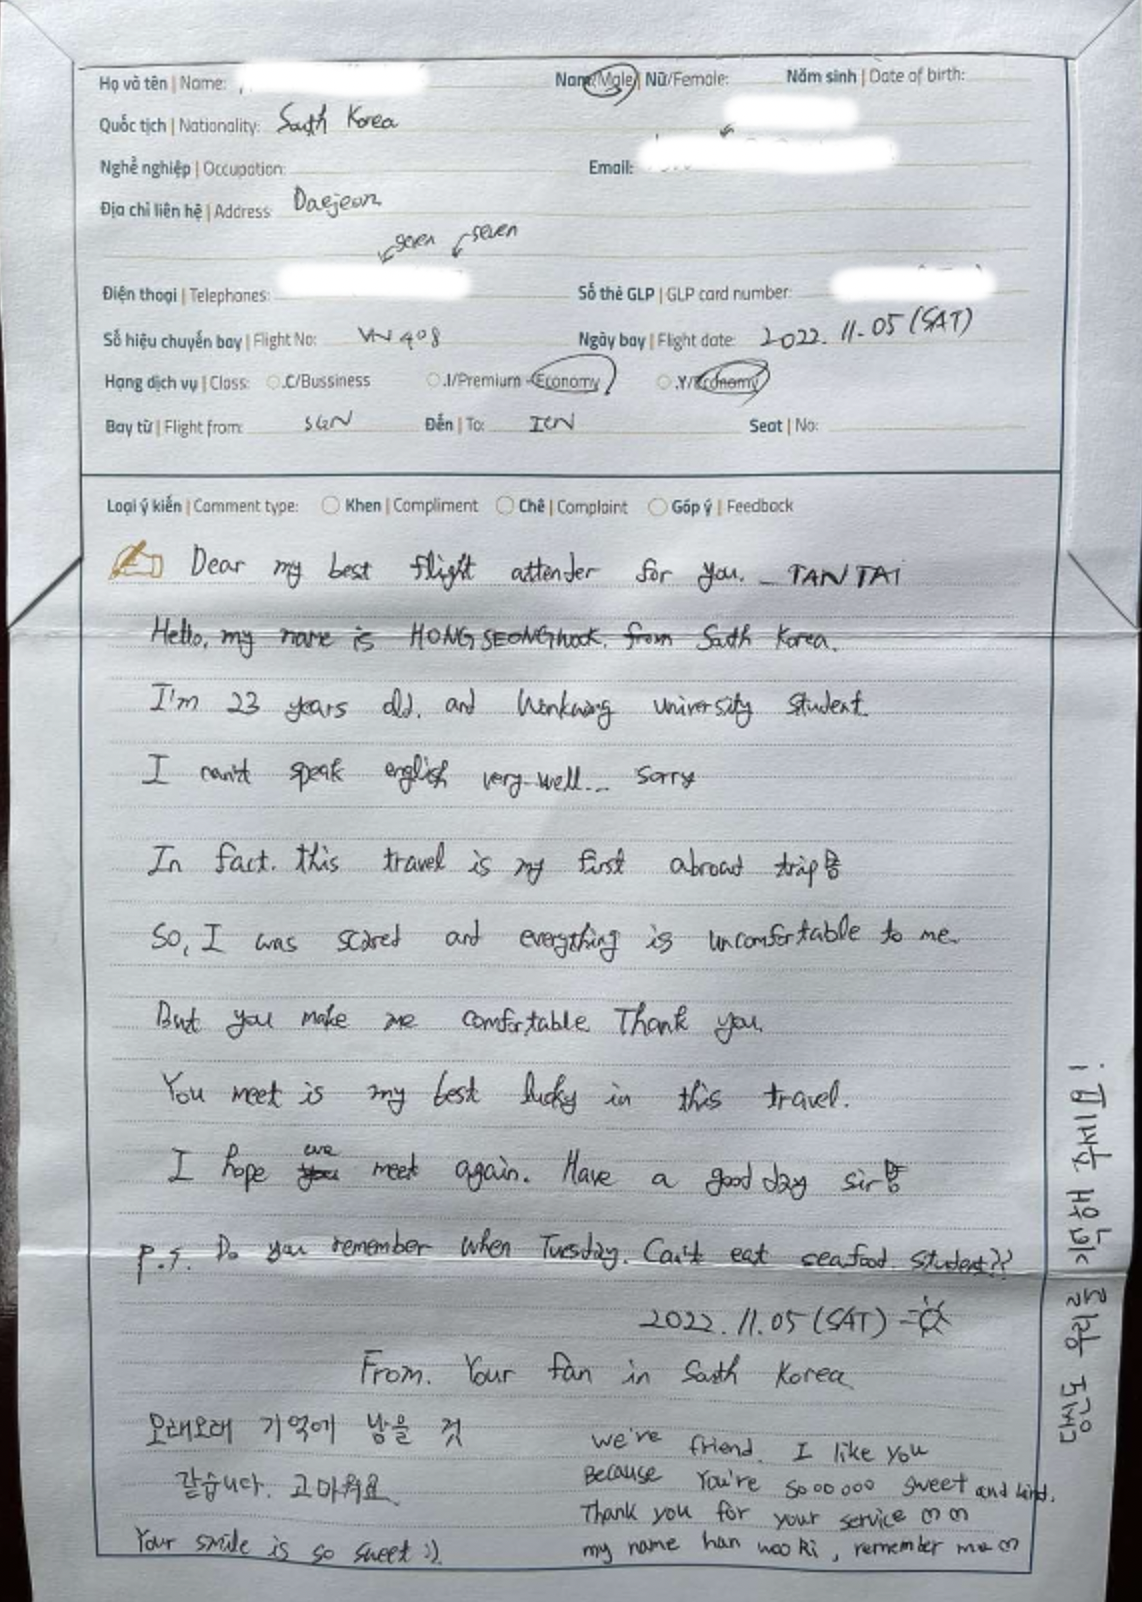 Họ và tên | Name:
Nam/Male | Nữ/Female:
Năm sinh | Date of birth:
Quốc tịch | Nationality: South Korea
Nghề nghiệp | Occupation:
Email:
Địa chỉ liên hệ | Address: Daejeon
seven seven
Điện thoại | Telephones:
Số thẻ GLP | GLP card number:
Số hiệu chuyến bay | Flight No: VN 408
Ngày bay | Flight date: 2022. 11. 05 (SAT)
Hạng dịch vụ | Class: .C/Bussiness .J/Premium - Economy .Y/Economy
Bay từ | Flight from: SGN Đến | To: ICN Seat | No:
Loại ý kiến | Comment type: Khen | Compliment Chê | Complaint Góp ý | Feedback
Dear my best flight attender for you. _ TAN TAI
Hello, my name is HONG from South Korea.
I'm 23 years old. and Wonkwang university student
I can't speak english very well... sorry
In fact. this travel is my first abroad trip
So, I was scared and everything is uncomfortable to me.
But you make me comfortable Thank you.
You meet is my best lucky in this travel.
I hope we meet again. Have a good day sir
P.S. Do you remember when Tuesday. Can't eat seafood student??
2022. 11. 05 (SAT)
From. Your fan in South Korea
오래오래 기억에 남을 것
같습니다. 고마워요
Your smile is so sweet :).
we're friend. I like you
Because You're Soooooo sweet and kind.
Thank you for your service
my name han woo ki, remember me